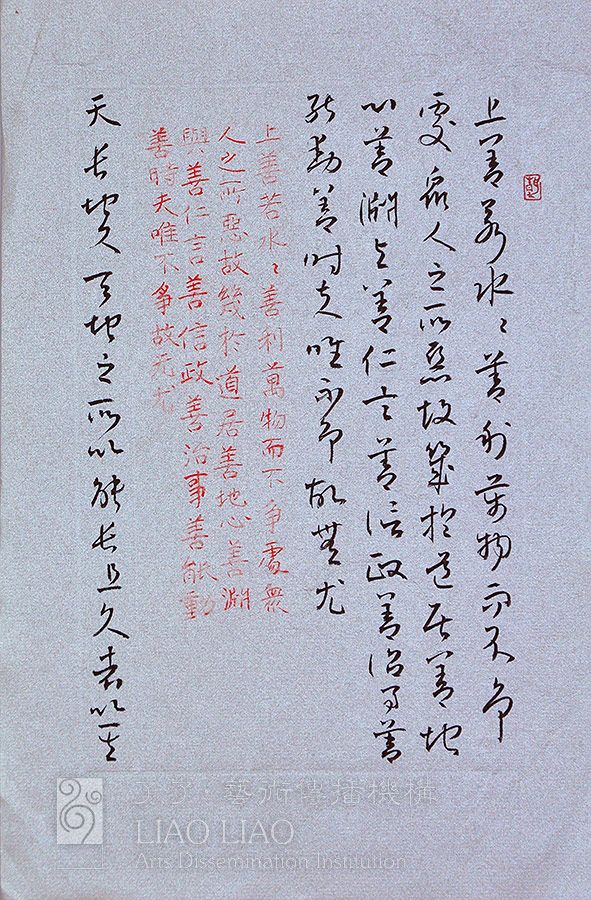 上善若水〻善利萬物而不爭
處眾人之所惡故幾於道居善地
心善淵与善仁言善信政善治事善
能動善時夫唯不爭故無尤
上善若水〻善利萬物而不爭處眾
人之所惡故幾於道居善地心善淵
與善仁言善信政善治事善能動
善時夫唯不爭故无尤
天長地久天地之所以能長且久者以其
藝術傳播機構
LIAO LIAO
Arts Dissemination Institution